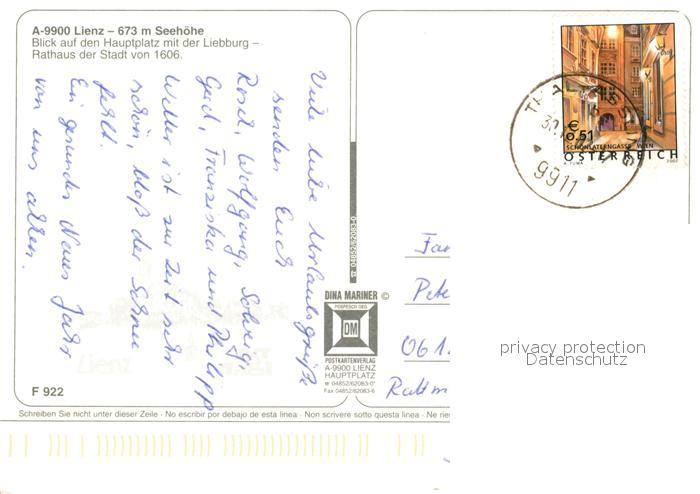 A-9900 Lienz – 673 m Seehöhe
Blick auf den Hauptplatz mit der Liebburg –
Rathaus der Stadt von 1606.
Viele liebe Urlaubsgrüße
senden Euch
Rosi, Wolfgang,
Gudi, Franziska und Philipp
Wetter ist zur Zeit sehr
schön, bloß der Schnee
fehlt.
Ein gesundes Neues Jahr
von uns allen.
F 922
☎ 04852/62083-0
DINA MARINER ©
POSPESCH DES.
DM
POSTKARTENVERLAG
A-9900 LIENZ
HAUPTPLATZ
☎ 04852/62083-0*
Fax 04852/62083-6
€
0,51
SCHÖNLATERNGASSE, WIEN
ÖSTERREICH
A. TUMA
2002
9911
Fam
Pete
061
Rattm
privacy protection
Datenschutz
Lienz
Schreiben Sie nicht unter dieser Zeile · No escribir por debajo de esta linea · Non scrivere sotto questa linea · Ne